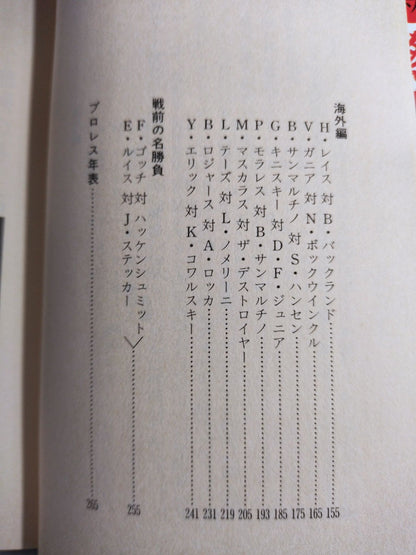 海外編
H・レイス 対 B・バックランド……155
V・ガニア 対 N・ボックウインクル……165
B・サンマルチノ 対 S・ハンセン……175
G・キニスキー 対 D・F・ジュニア……185
P・モラレス 対 B・サンマルチノ……193
M・マスカラス 対 ザ・デストロイヤー……205
L・テーズ 対 L・ノメリーニ……219
B・ロジャース 対 A・ロッカ……231
Y・エリック 対 K・コワルスキー……241
戦前の名勝負
F・ゴッチ 対 ハッケンシュミット
E・ルイス 対 J・ステッカー……255
プロレス年表……265